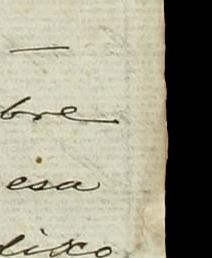 —
bre
esa
dixo